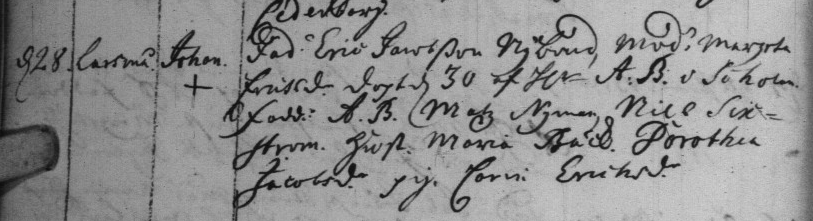 Cederborg.
d 28. Carsmu. Johan. Fad: Eric Jacobsson Nybond, Mod: Margeta
+ Ericsd. döptd 30 af H A. B. v Scholm.
Fadd: A. B. Matz Nyman, Nils Six=
strom. Hust. Maria Bäck. Dorothea
Jacobsd. pig. Carin Erichsd.